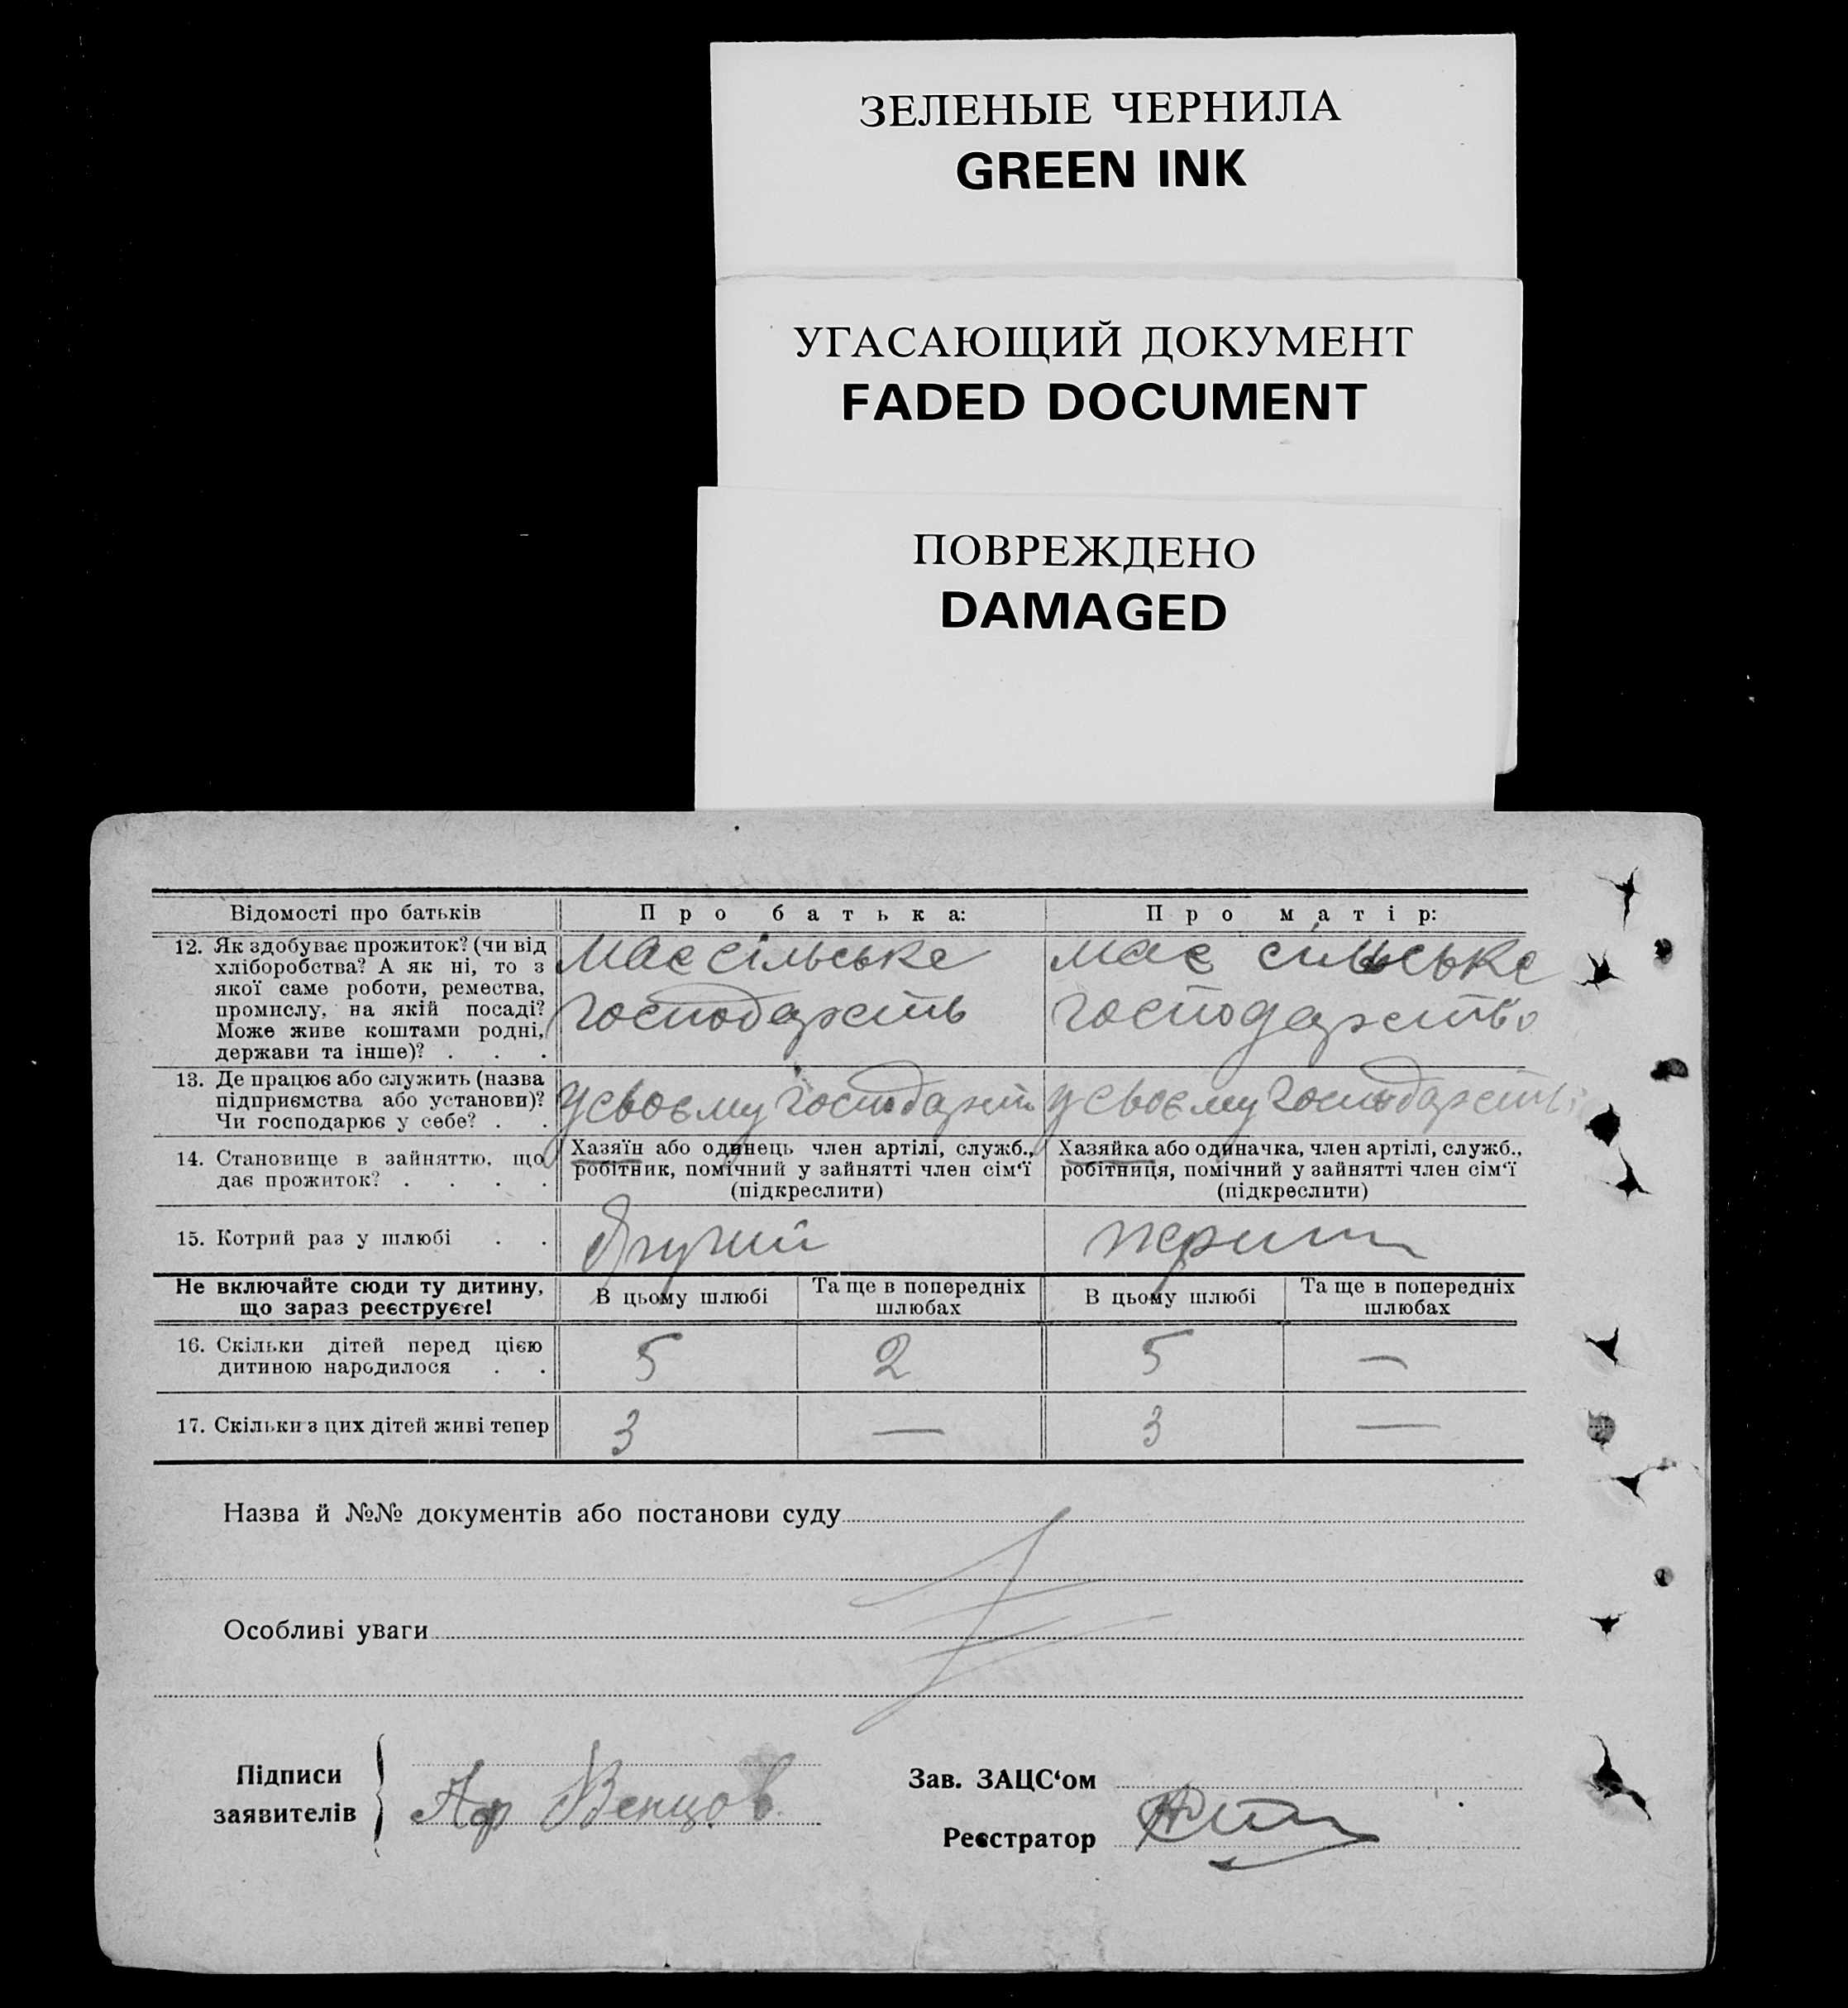 ЗЕЛЕНЫЕ ЧЕРНИЛА
GREEN INK
УГАСАЮЩИЙ ДОКУМЕНТ
FADED DOCUMENT
ПОВРЕЖДЕНО
DAMAGED
Відомості про батьків
Про батька:
Про матір:
12. Як здобуває прожиток? (чи від
хліборобства? А як ні, то з
якої саме роботи, ремества,
промислу, на якій посаді?
Може живе коштами родні,
держави та інше)? . . .
Має сільське
господарств
має сільське
господарство
13. Де працює або служить (назва
підприємства або установи)?
Чи господарює у себе? . .
у своєму господарств
у своєму господарстві
14. Становище в зайняттю, що
дає прожиток? . . . .
Хазяїн або одинець член артілі, служб.,
робітник, помічний у зайнятті член сім‘ї
(підкреслити)
Хазяйка або одиначка, член артілі, служб.,
робітниця, помічний у зайнятті член сім‘ї
(підкреслити)
15. Котрий раз у шлюбі . .
Другий
перший
Не включайте сюди ту дитину,
що зараз реєструєте!
В цьому шлюбі
Та ще в попередніх
шлюбах
В цьому шлюбі
Та ще в попередніх
шлюбах
16. Скільки дітей перед цією
дитиною народилося . .
5
2
5
—
17. Скільки з цих дітей живі тепер
3
—
3
—
Назва й №№ документів або постанови суду
Особливі уваги
Підписи
заявителів
Венцов
Зав. ЗАЦС‘ом
Реєстратор